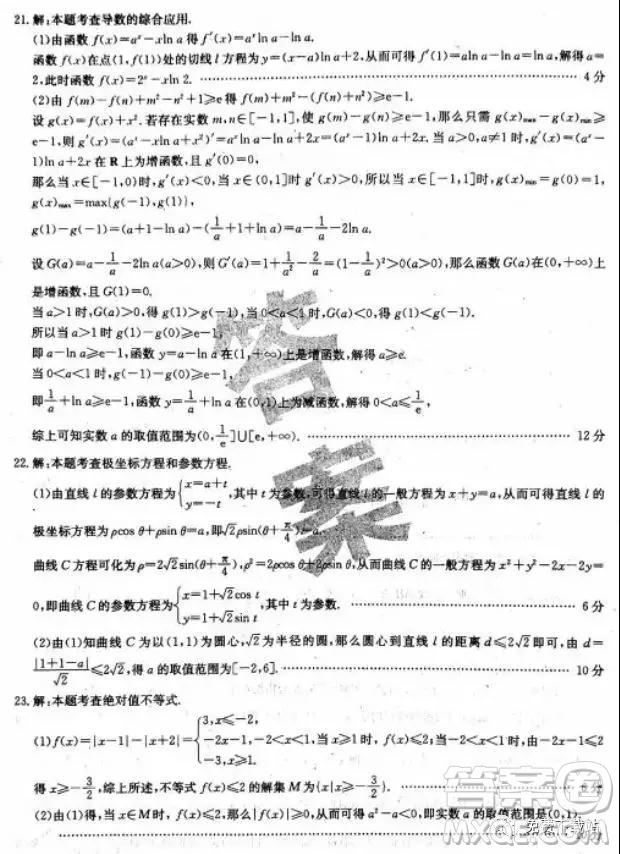 21.解:本题考查导数的综合应用.
(1)由函数 f(x)=a^x-xln a 得 f'(x)=a^xln a-ln a.
函数 f(x)在点(1,f(1))处的切线 l 方程为 y=(x-a)ln a+2,从而可得 f'(1)=aln a-ln a=ln a,解得 a=
2,此时函数 f(x)=2^x-xln 2. 4 分
(2)由 f(m)-f(n)+m²-n²+1≥e 得 f(m)+m²-(f(n)+n²)≥e-1.
设 g(x)=f(x)+x². 若存在实数 m,n∈[-1,1],使 g(m)-g(n)≥e-1,那么只需 g(x)max-g(x)min≥
e-1,则 g'(x)=(a^x-xln a+x²)'=a^xln a-ln a+2x=(a^x-1)ln a+2x. 当 a>0,a≠1 时,g'(x)=(a^x-
1)ln a+2x 在 R 上为增函数,且 g'(0)=0.
那么当 x∈[-1,0)时,g'(x)<0,当 x∈(0,1]时 g'(x)>0,所以当 x∈[-1,1]时,g(x)min=g(0)=1,
g(x)max=max{g(-1),g(1)},
g(1)-g(-1)=(a+1-ln a)-(1/a+1+ln a)=a-1/a-2ln a.
设 G(a)=a-1/a-2ln a(a>0),则 G'(a)=1+1/a²-2/a=(1-1/a)²>0(a>0),那么函数 G(a)在(0,+∞)上
是增函数,且 G(1)=0.
当 a>1 时,G(a)>0,得 g(1)>g(-1),当 0<a<1 时,G(a)<0,得 g(1)<g(-1).
所以当 a>1 时,g(1)-g(0)≥e-1,
即 a-ln a≥e-1,函数 y=a-ln a 在(1,+∞)上是增函数,解得 a≥e.
当 0<a<1 时,g(-1)-g(0)≥e-1,
即 1/a+ln a≥e-1,函数 y=1/a+ln a 在(0,1)上为减函数,解得 0<a≤1/e,
综上可知实数 a 的取值范围为(0,1/e]∪[e,+∞). 12 分
22.解:本题考查极坐标方程和参数方程.
(1)由直线 l 的参数方程为{x=a+t y=-t ,其中 t 为参数,可得直线 l 的一般方程为 x+y=a,从而可得直线 l 的
极坐标方程为 ρcos θ+ρsin θ=a,即√2ρsin(θ+π/4)=a.
曲线 C 方程可化为 ρ=2√2sin(θ+π/4),ρ²=2ρcos θ+2ρsin θ,从而曲线 C 的一般方程为 x²+y²-2x-2y=
0,即曲线 C 的参数方程为{x=1+√2cos t y=1+√2sin t ,其中 t 为参数. 6 分
(2)由(1)知曲线 C 为以(1,1)为圆心,√2为半径的圆,那么圆心到直线 l 的距离 d≤2√2即可,由 d=
|1+1-a|/√2≤2√2,得 a 的取值范围为[-2,6]. 10 分
23.解:本题考查绝对值不等式.
(1)f(x)=|x-1|-|x+2|={3,x≤-2, -2x-1,-2<x<1,当 x≥1 时,f(x)≤2,当-2<x<1 时,由 f(x)≤2,
得 x≥-3/2,综上所述,不等式 f(x)≤2 的解集 M 为{x|x≥-3/2}. 6 分
(2)由(1)得,当 x∈M 时,那么|f(x)|≥0,从而可得 a²-a<0,即实数 a 的取值范围是(0,1).
答案
答案圈
免费下载站